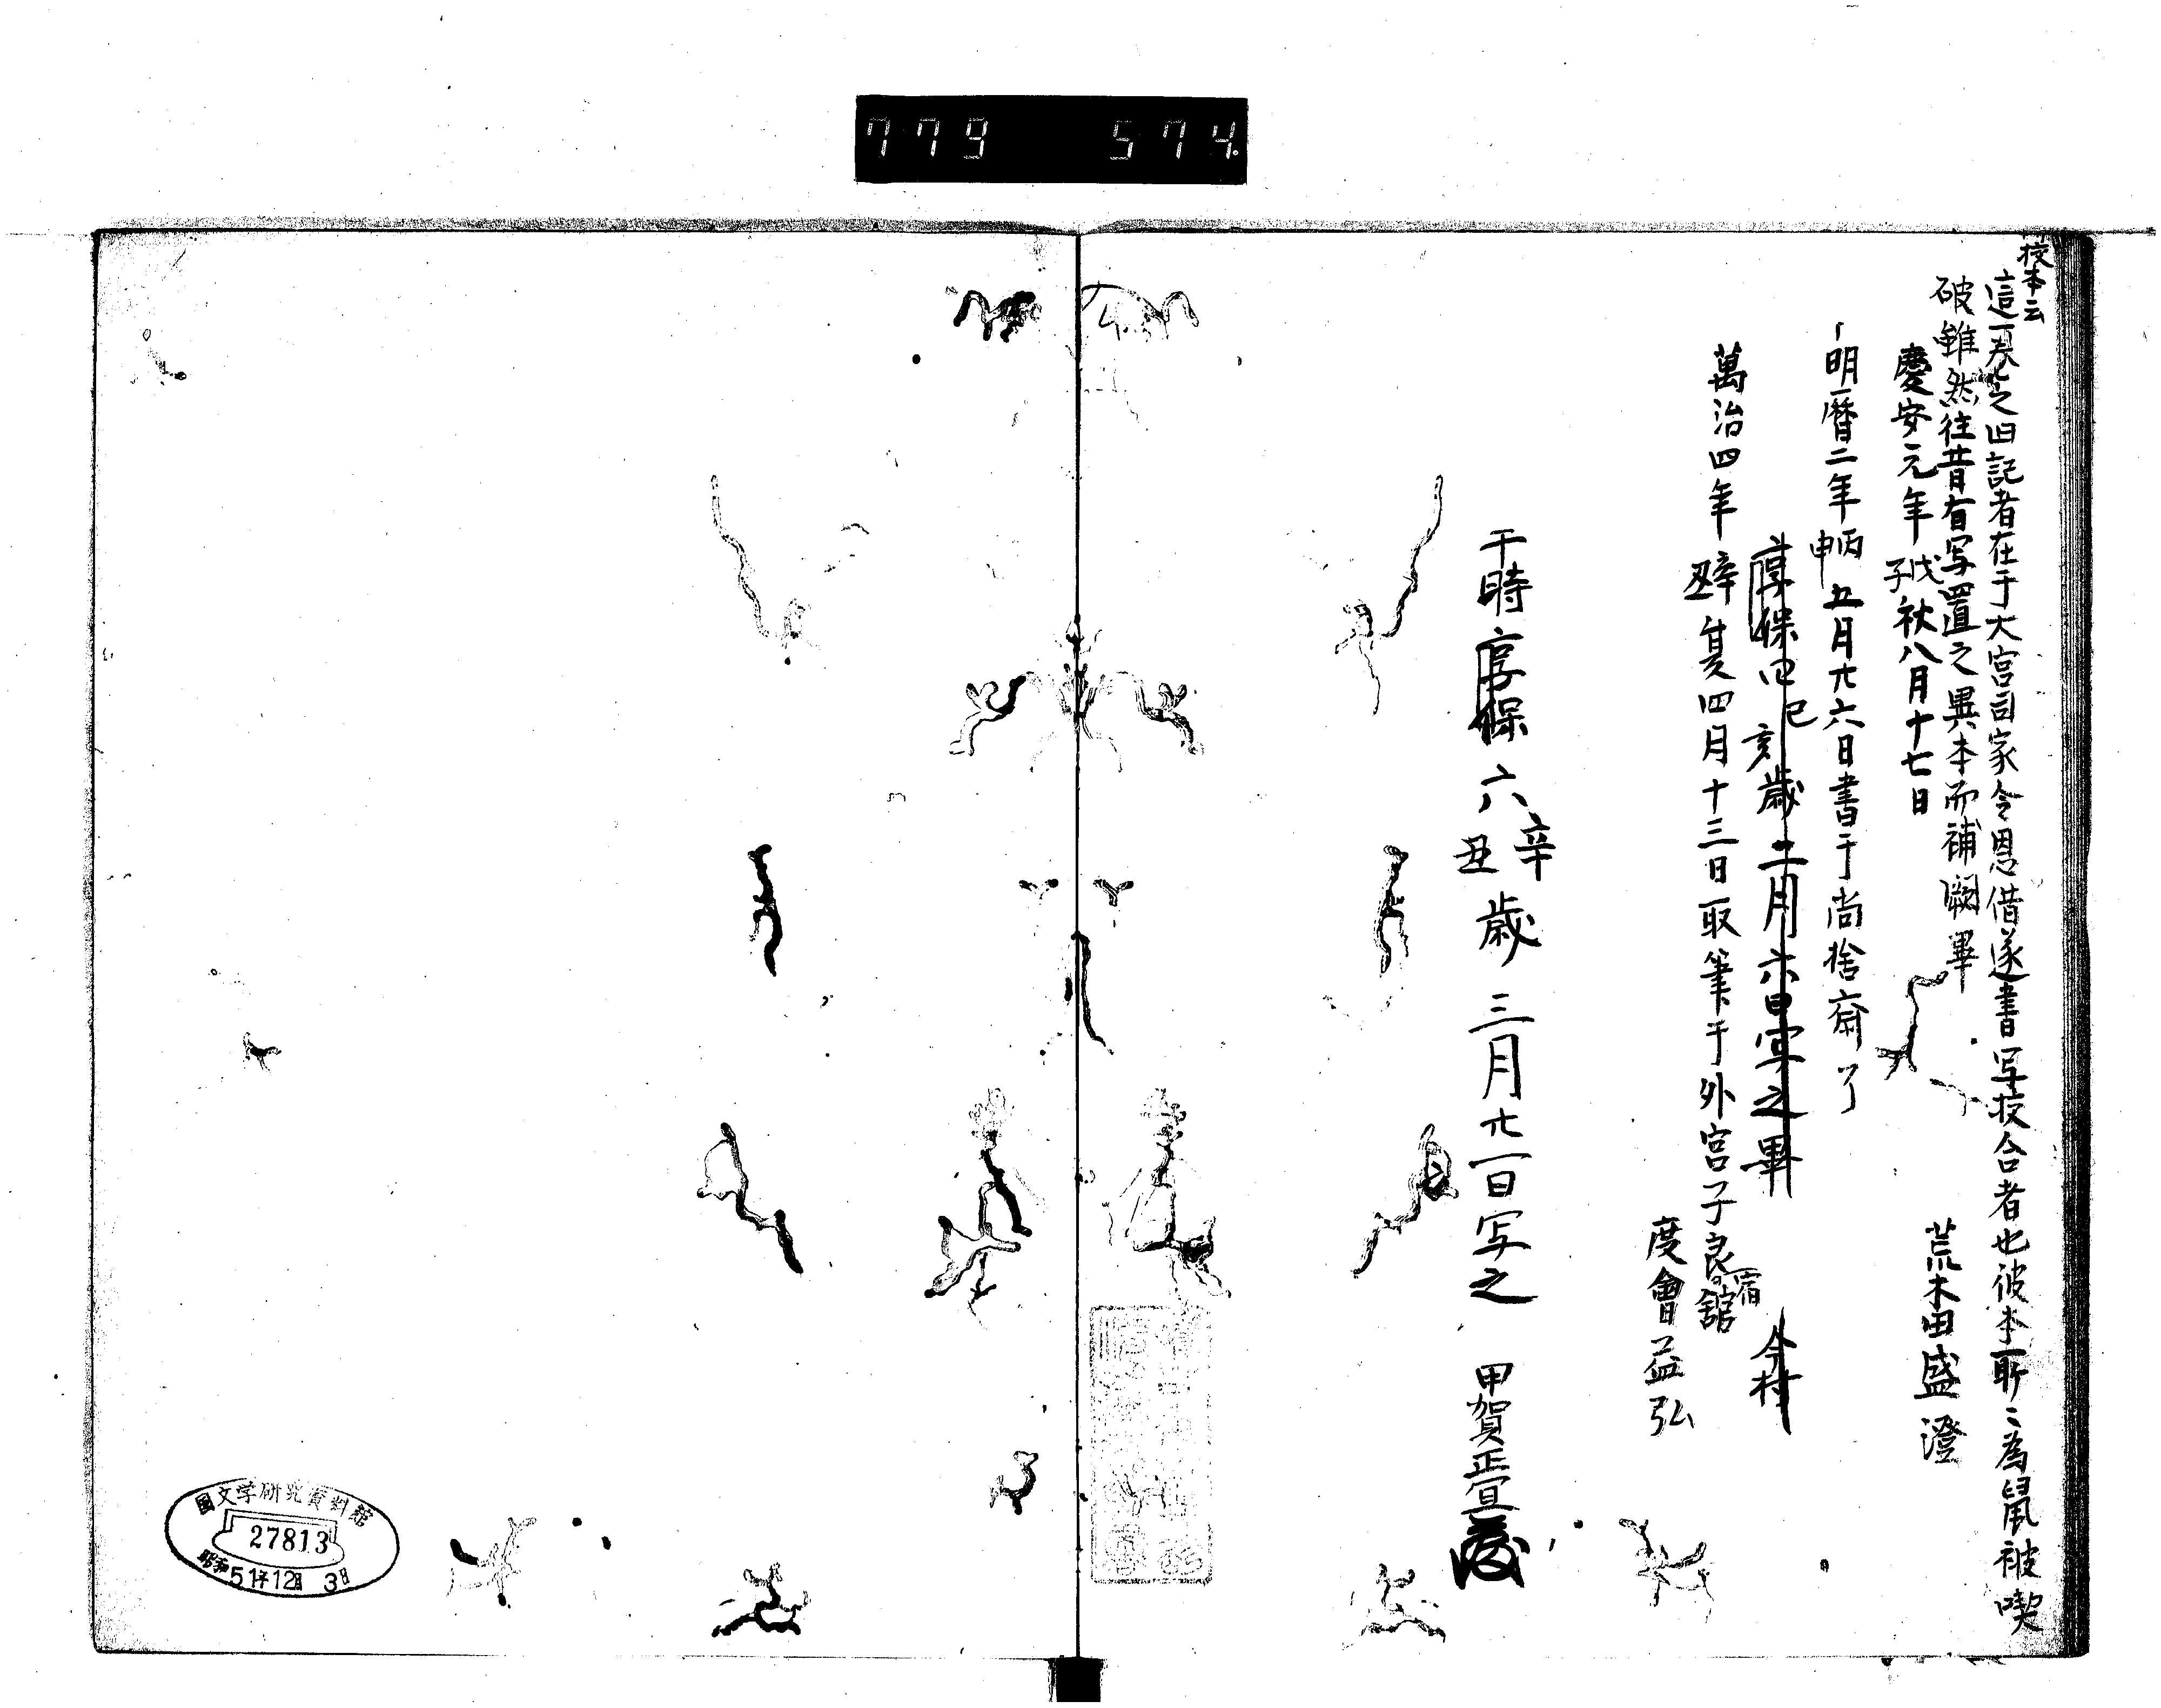 779 574.
校本云
這一卷之旧記者在于大宮司家令恩借遂書写校合者也彼本所々為鼠被喫
破雖然往昔有写置之異本而補闕畢
慶安元年戊子秋八月十七日 荒木田盛澄
明暦二年丙申五月廿六日書于尚捨斎了
享保四己亥歳二月六日写之畢 今村
萬治四年辛丑夏四月十三日取筆于外宮子良宿舘
度會益弘
于時享保六辛丑歳三月廿一日写之 甲賀正宣
國文学研究資料館
27813
昭和51年12月3日